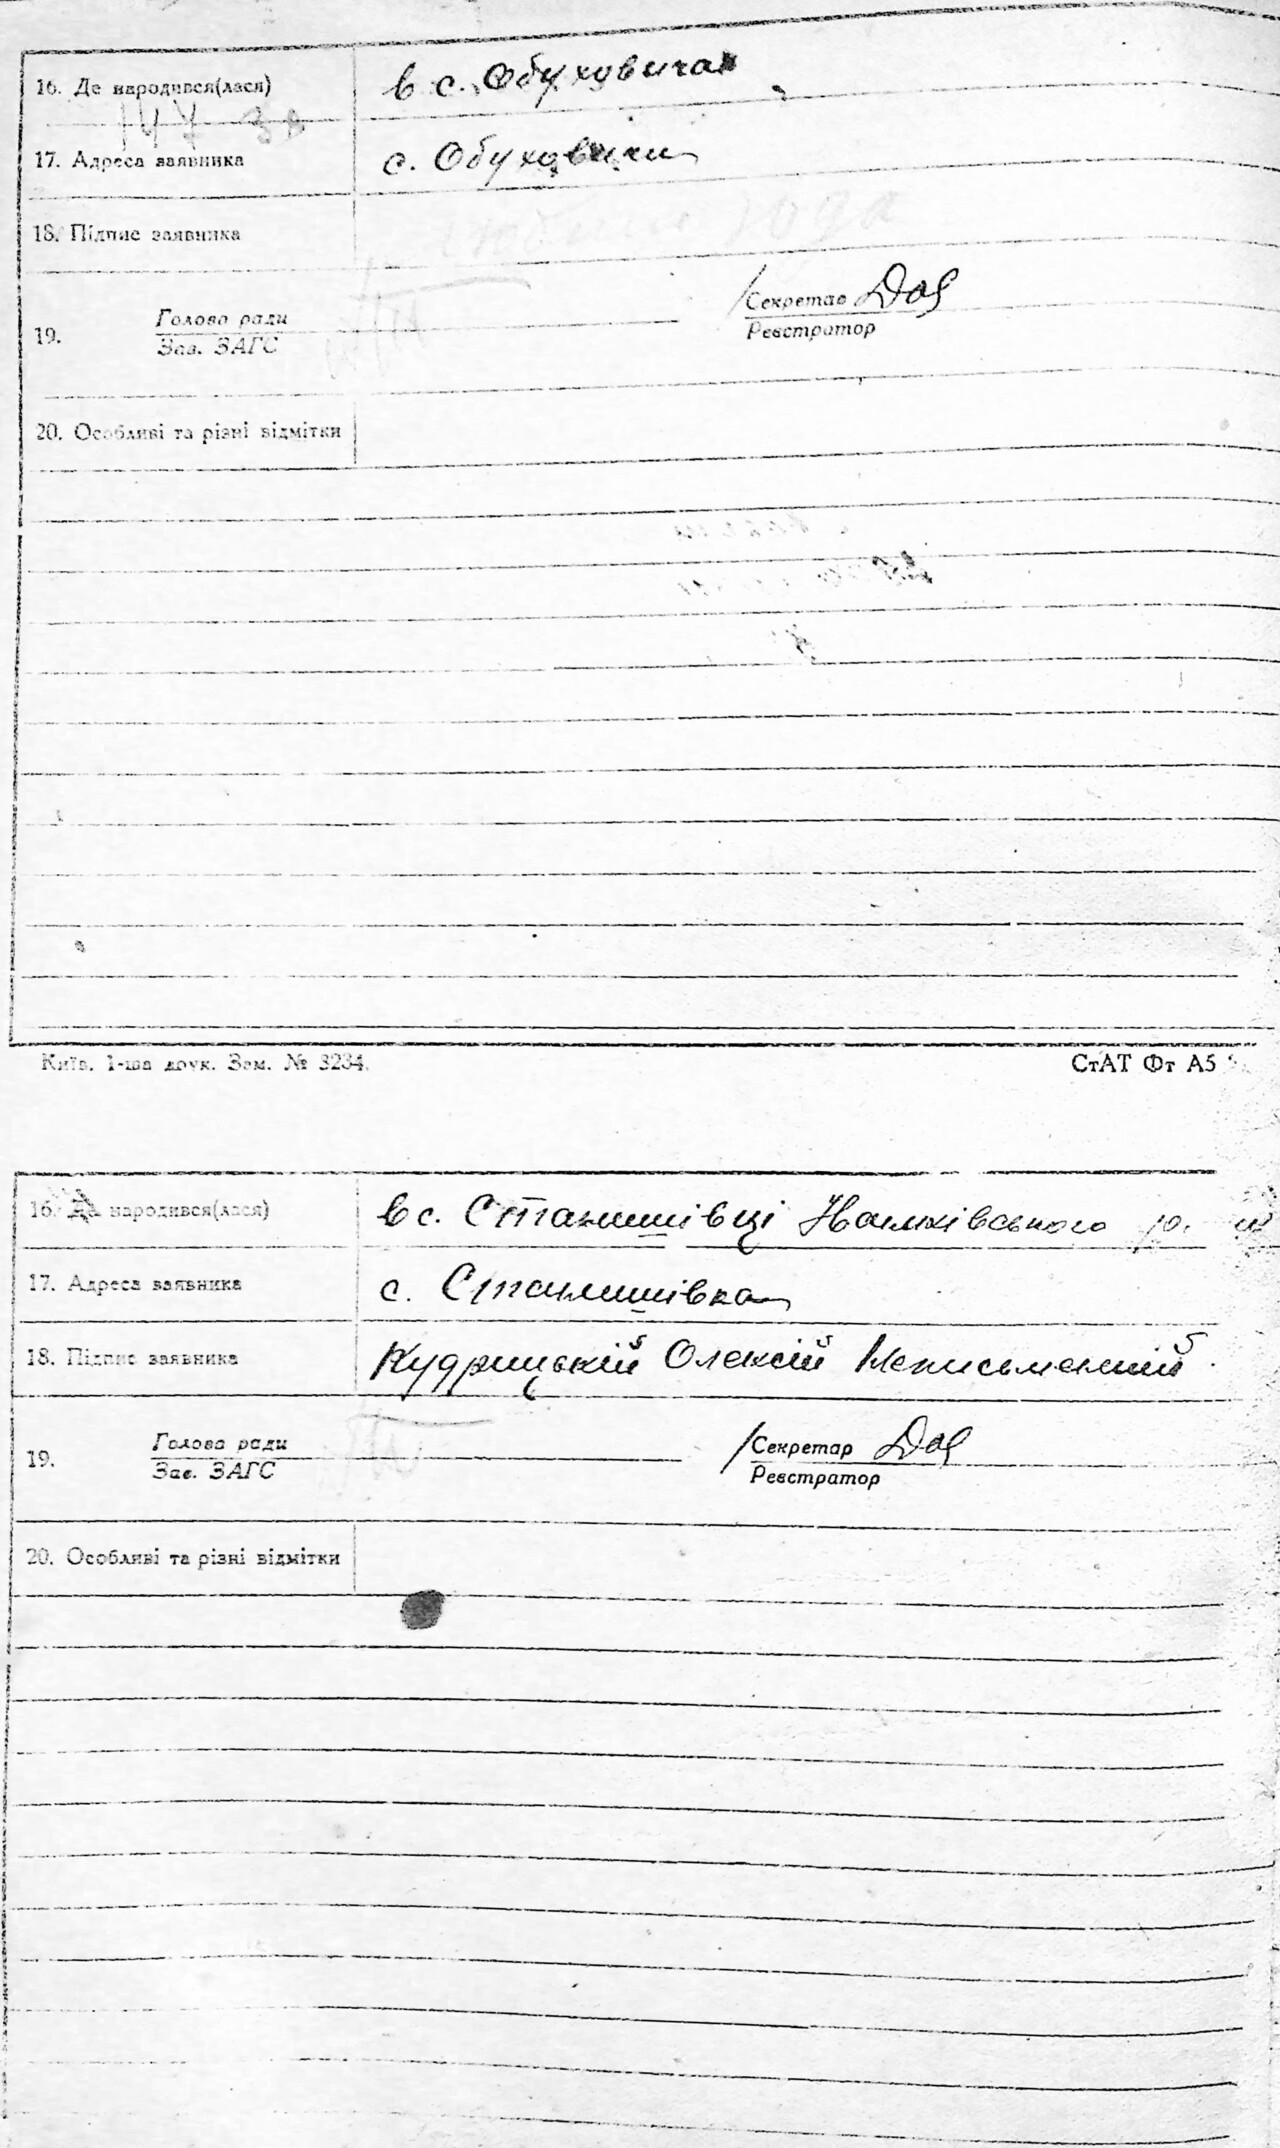 16. Де народився(лася) в с. Обуховичах
147 За
17. Адреса заявника с. Обуховичи
18. Підпис заявника
19. Голова ради Секретар
Зав. ЗАГС Реєстратор
20. Особливі та різні відмітки
Київ. 1-ша друк. Зам. № 3234. СтАТ Фт А5
16. Де народився(лася) в с. Станишівці Іванківського р.
17. Адреса заявника с. Станишівка
18. Підпис заявника Кудрицькій Олексій Неписьменний
19. Голова ради Секретар
Зав. ЗАГС Реєстратор
20. Особливі та різні відмітки